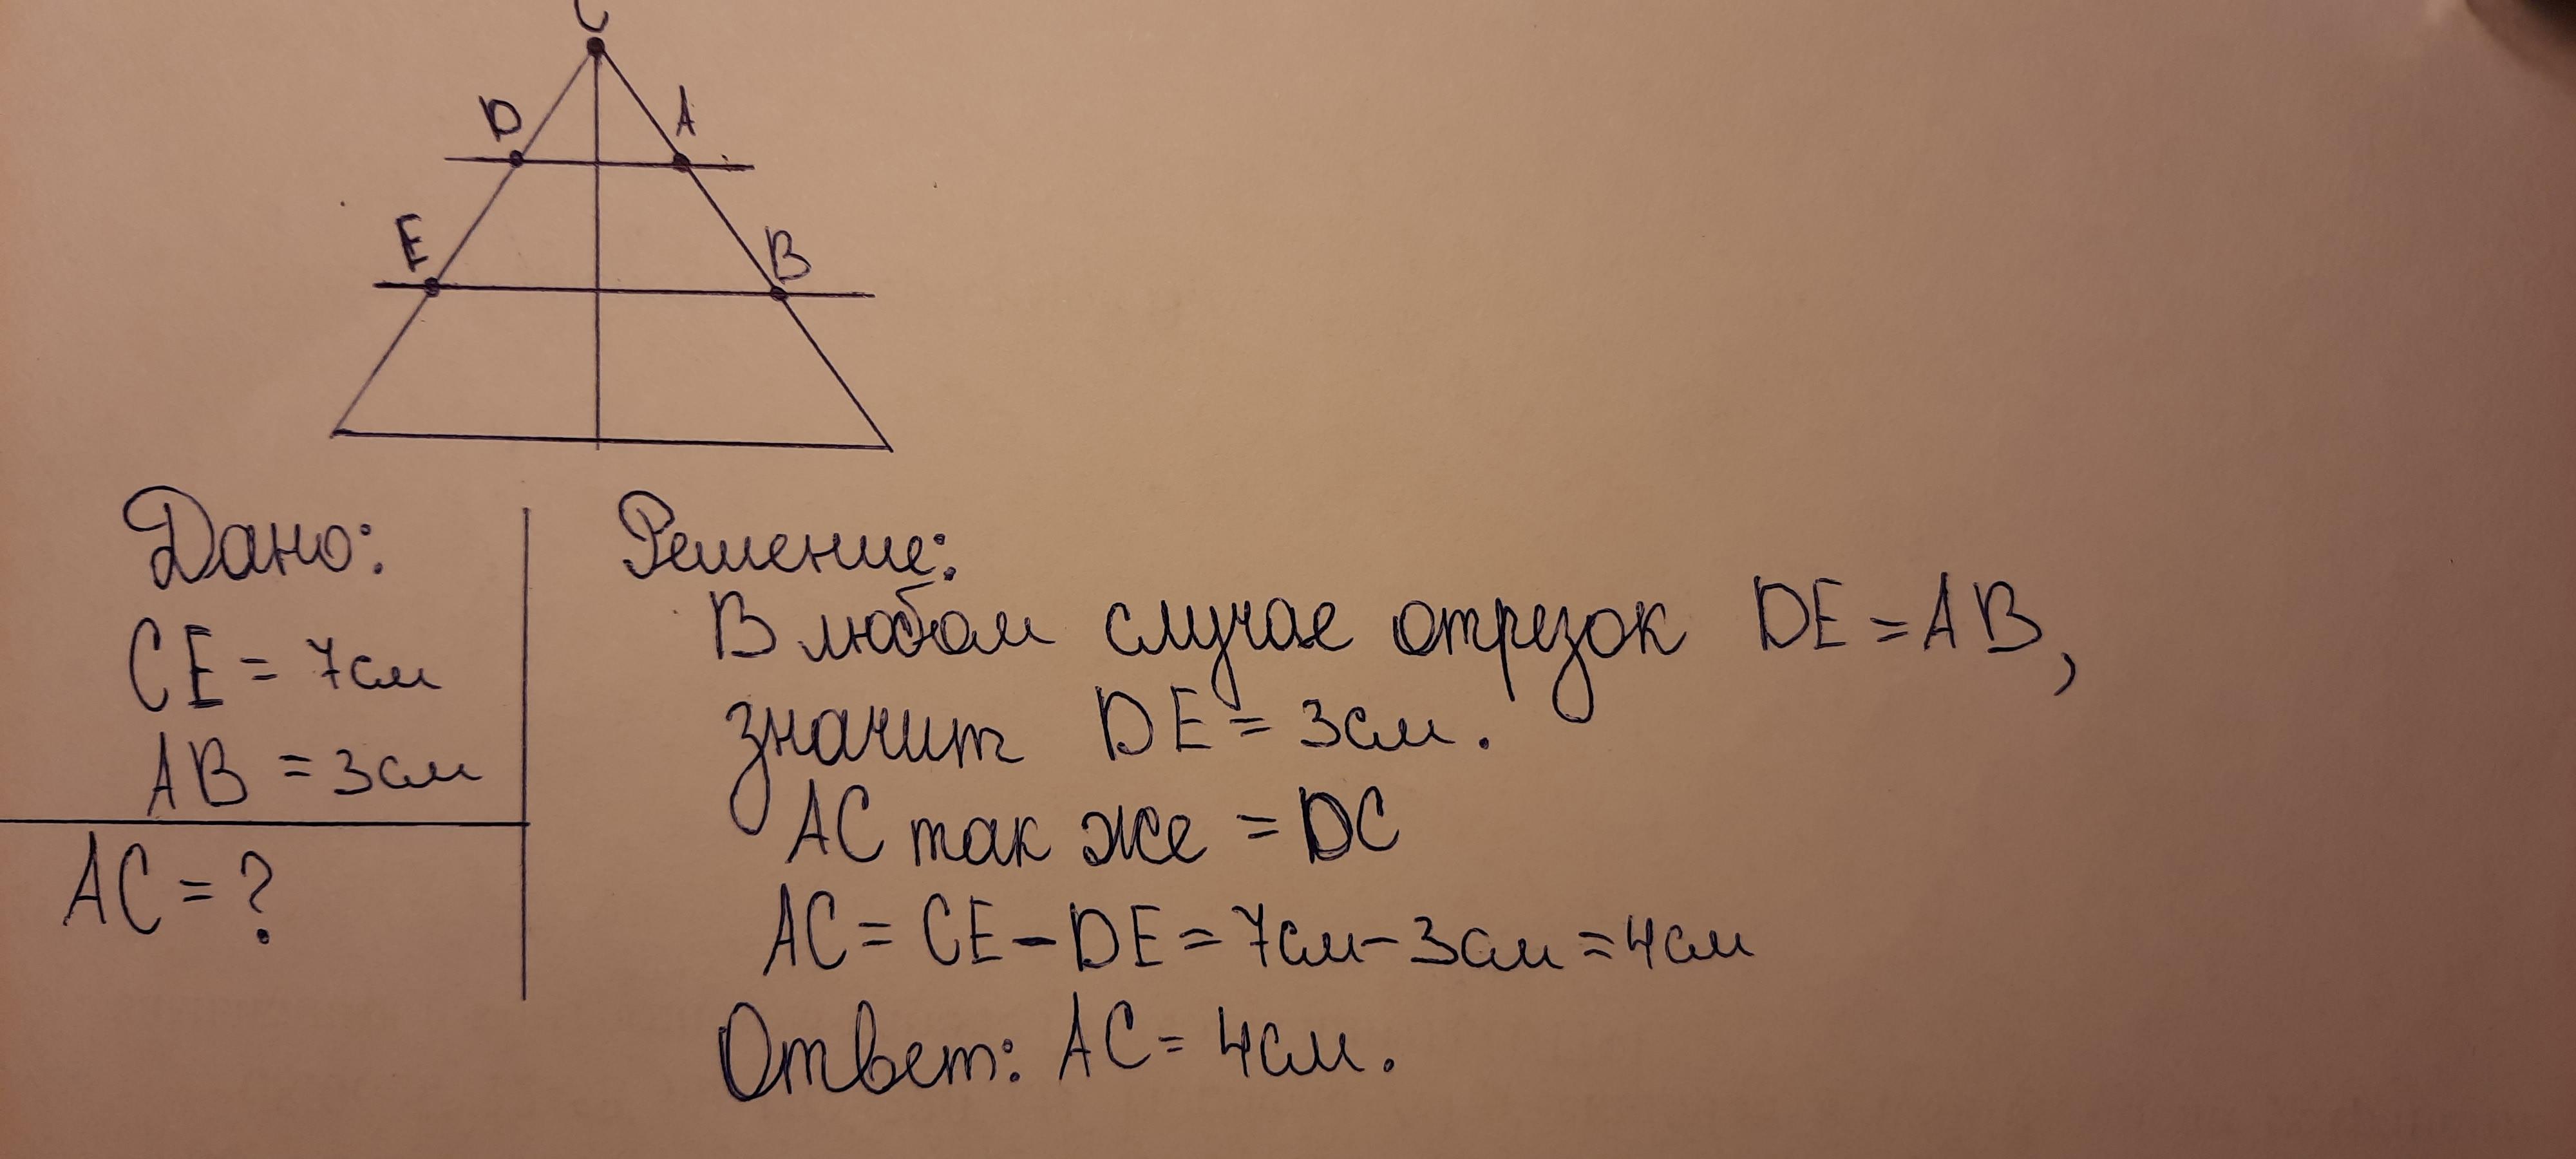 C
D A
E B
Дано:
CE = 7см
AB = 3см
AC = ?
Решение:
В любом случае отрезок DE = AB,
значит DE = 3см.
AC так же = DC
AC = CE - DE = 7см - 3см = 4см
Ответ: AC = 4см.